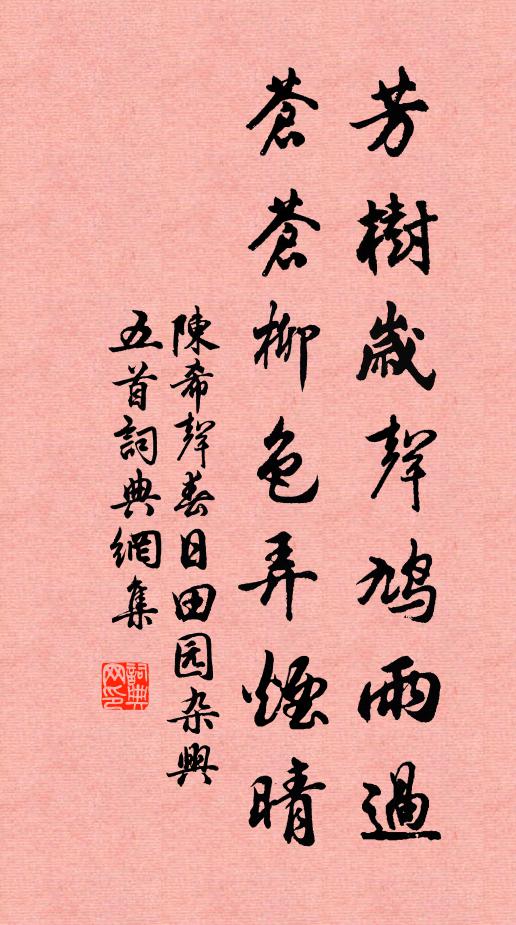 芳樹幾聲鳩雨過
蒼蒼柳色弄煙晴
陳希聲春日田园杂興
五首詞典網集
詞典网印